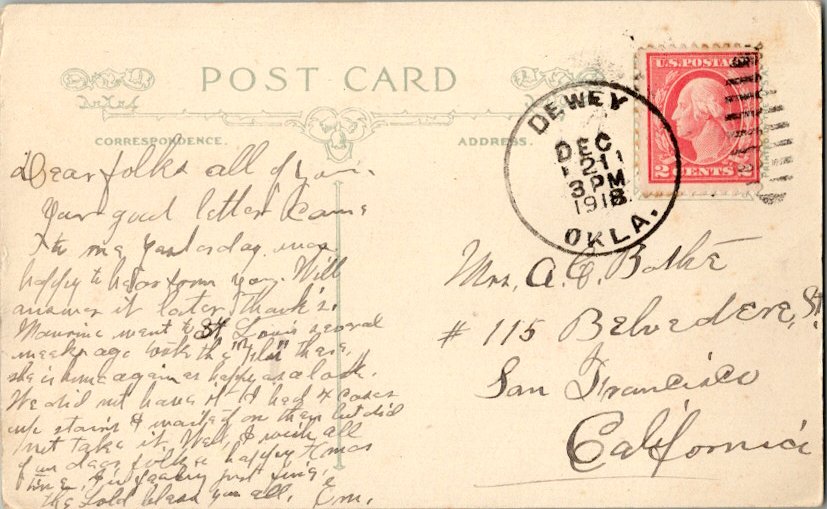 POST CARD
CORRESPONDENCE.
ADDRESS.
U.S. POSTAGE
2 CENTS 2
DEWEY
DEC
21
3 PM
1918
OKLA.
Dear folks all of you.
Your good letter came
to me yesterday. was
happy to hear from you. Will
answer it later, Thank's.
Maurine went to St Louis several
weeks ago took the "Flu" there,
she is home again as happy as a lark.
We did not have it I had 4 cases
up stairs & waited on them but did
not take it. Well, I wish all
of you dear folks a happy Xmas
time, I'm feeling just fine,
the Lord bless you all, Em.
Mrs, A. C. Bothe
# 115 Belvedere, St
San Francisco
California